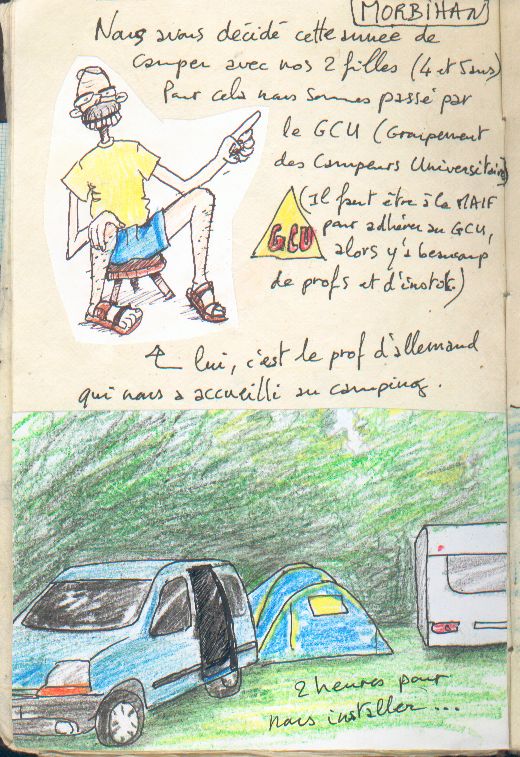 MORBIHAN
Nous avons décidé cette année de
camper avec nos 2 filles (4 et 5 ans)
Pour cela nous sommes passé par
le GCU (Groupement
des Campeurs Universitaires)
(Il faut être à la MAIF
GCU
pour adhérer au GCU,
alors y'a beaucoup
de profs et d'instits.)
lui, c'est le prof d'allemand
qui nous a accueilli au camping.
2 heures pour
nous installer...